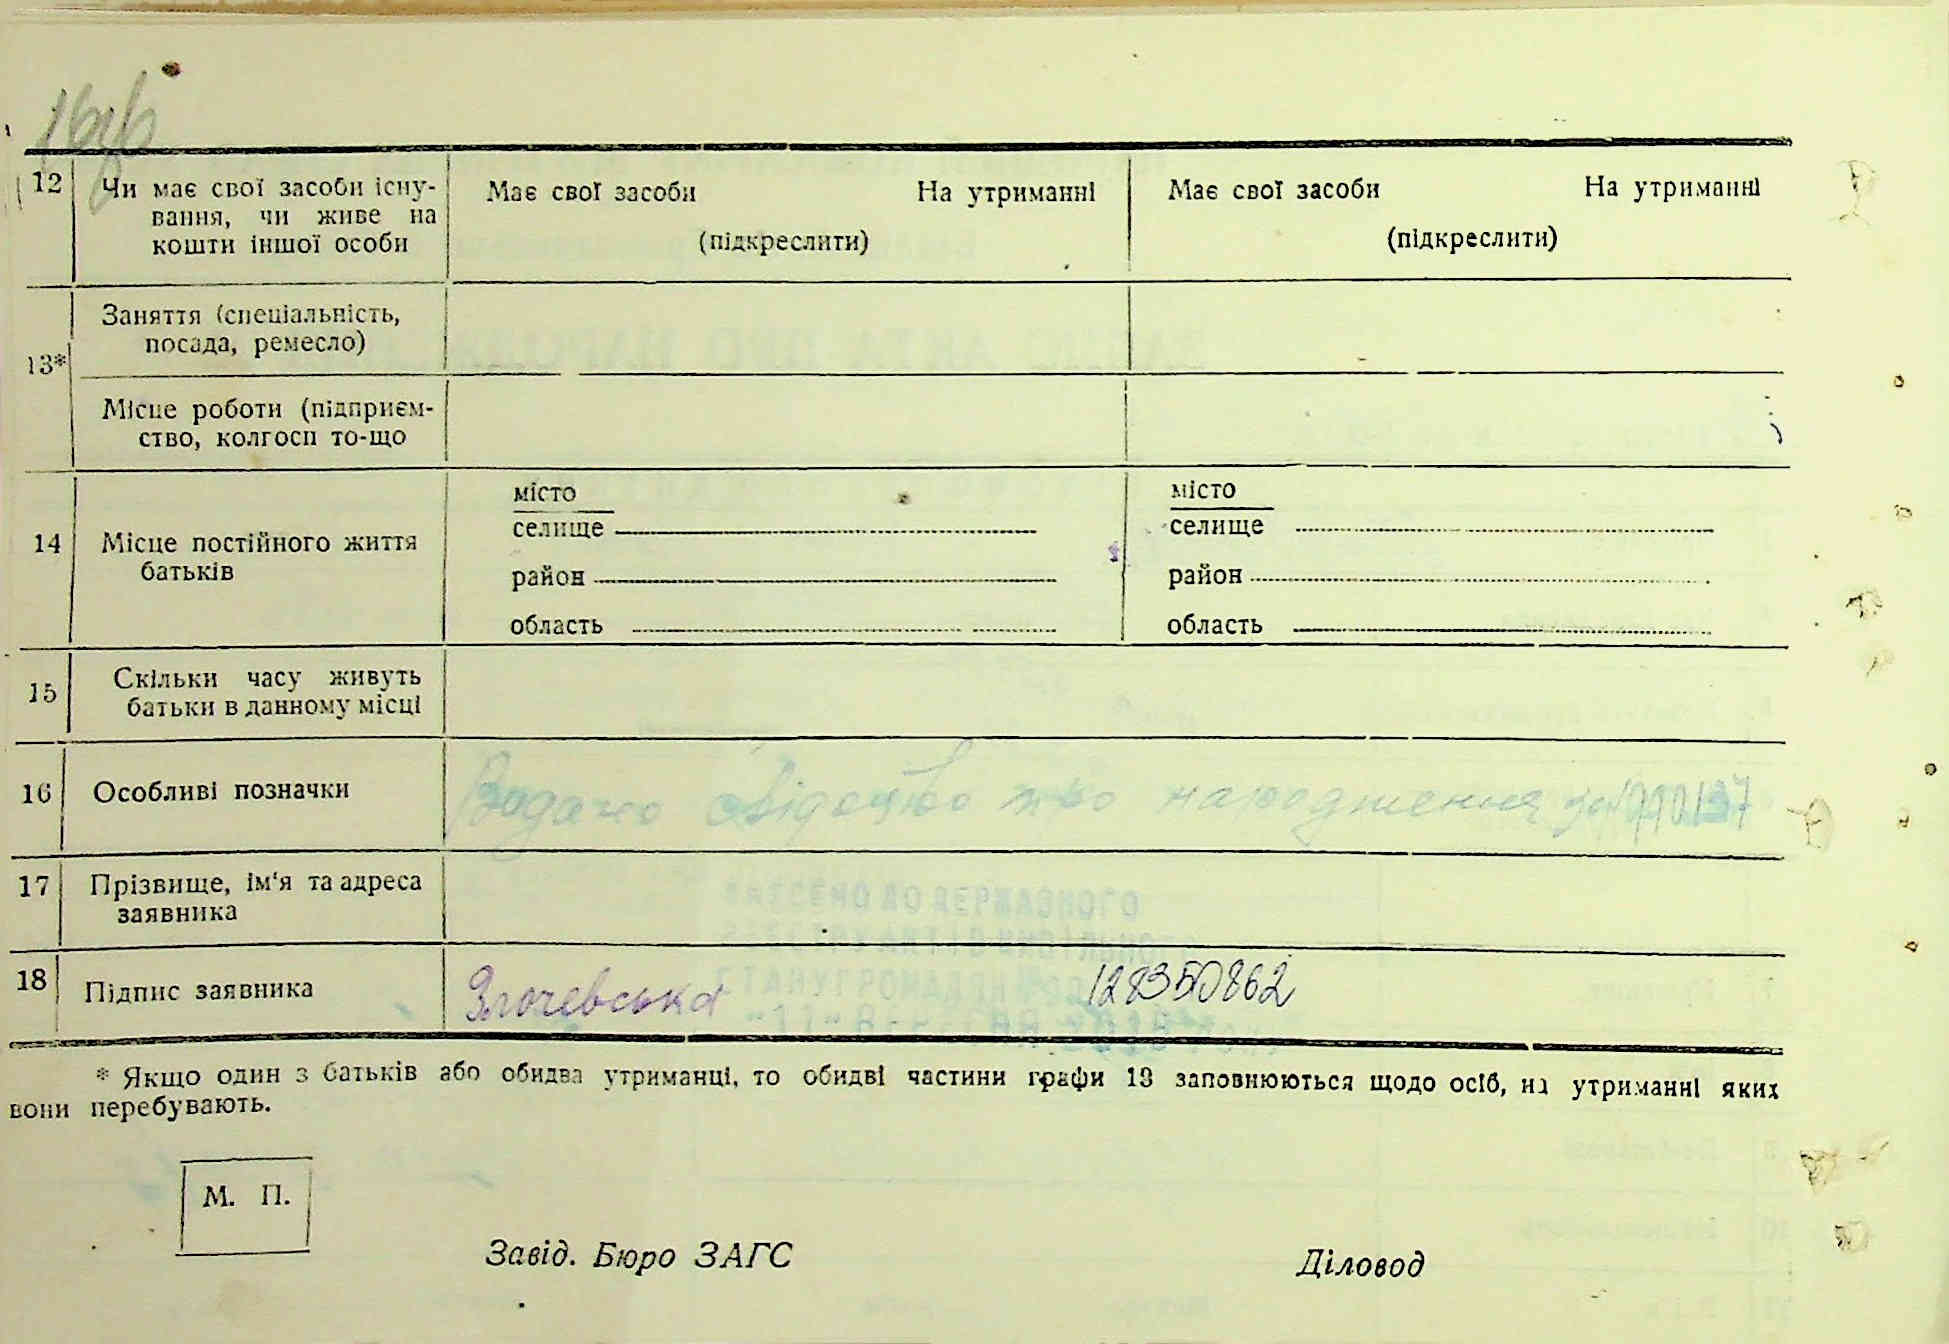 12
Чи має свої засоби існу-
вання, чи живе на
кошти іншої особи
Має свої засоби На утриманні
(підкреслити)
Має свої засоби На утриманні
(підкреслити)
13*
Заняття (спеціальність,
посада, ремесло)
Місце роботи (підприєм-
ство, колгосп то-що
14
Місце постійного життя
батьків
місто
селище
район
область
місто
селище
район
область
15
Скільки часу живуть
батьки в данному місці
16
Особливі позначки
Видано свідоцтво про народження
17
Прізвище, ім'я та адреса
заявника
ВНЕСЕНО ДО ДЕРЖАВНОГО
РЕЄСТРУ АКТІВ ЦИВІЛЬНОГО
СТАНУ ГРОМАДЯН
"11" ВЕРЕСНЯ
18
Підпис заявника
Злочевська
128350862
* Якщо один з батьків або обидва утриманці, то обидві частини графи 13 заповнюються щодо осіб, на утриманні яких
вони перебувають.
М. П.
Завід. Бюро ЗАГС
Діловод